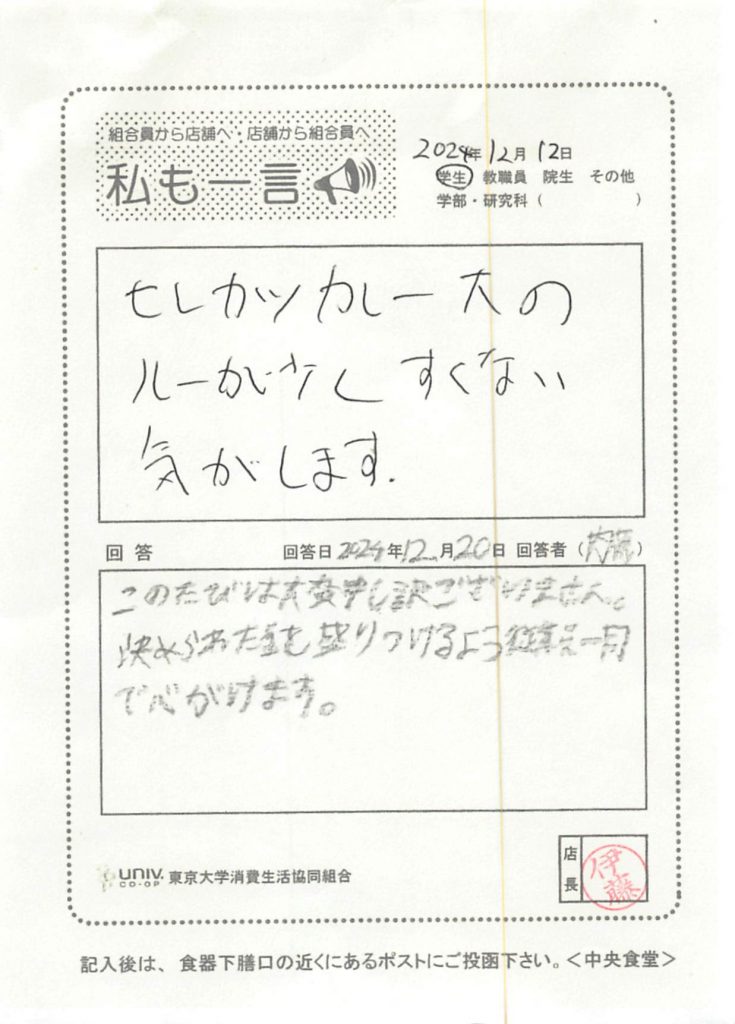 組合員から店舗へ・店舗から組合員へ
私も一言
2024年12月12日
学生 教職員 院生 その他
学部・研究科( )
セレカツカレー大の
ルーが少しすくない
気がします.
回答 回答日2024年12月20日 回答者(内藤)
このたびは大変申し訳ございません。
決められた量を盛りつけるよう従業員一同
で心がけます。
UNIV. CO-OP 東京大学消費生活協同組合
店長 伊藤
記入後は、食器下膳口の近くにあるポストにご投函下さい。<中央食堂>